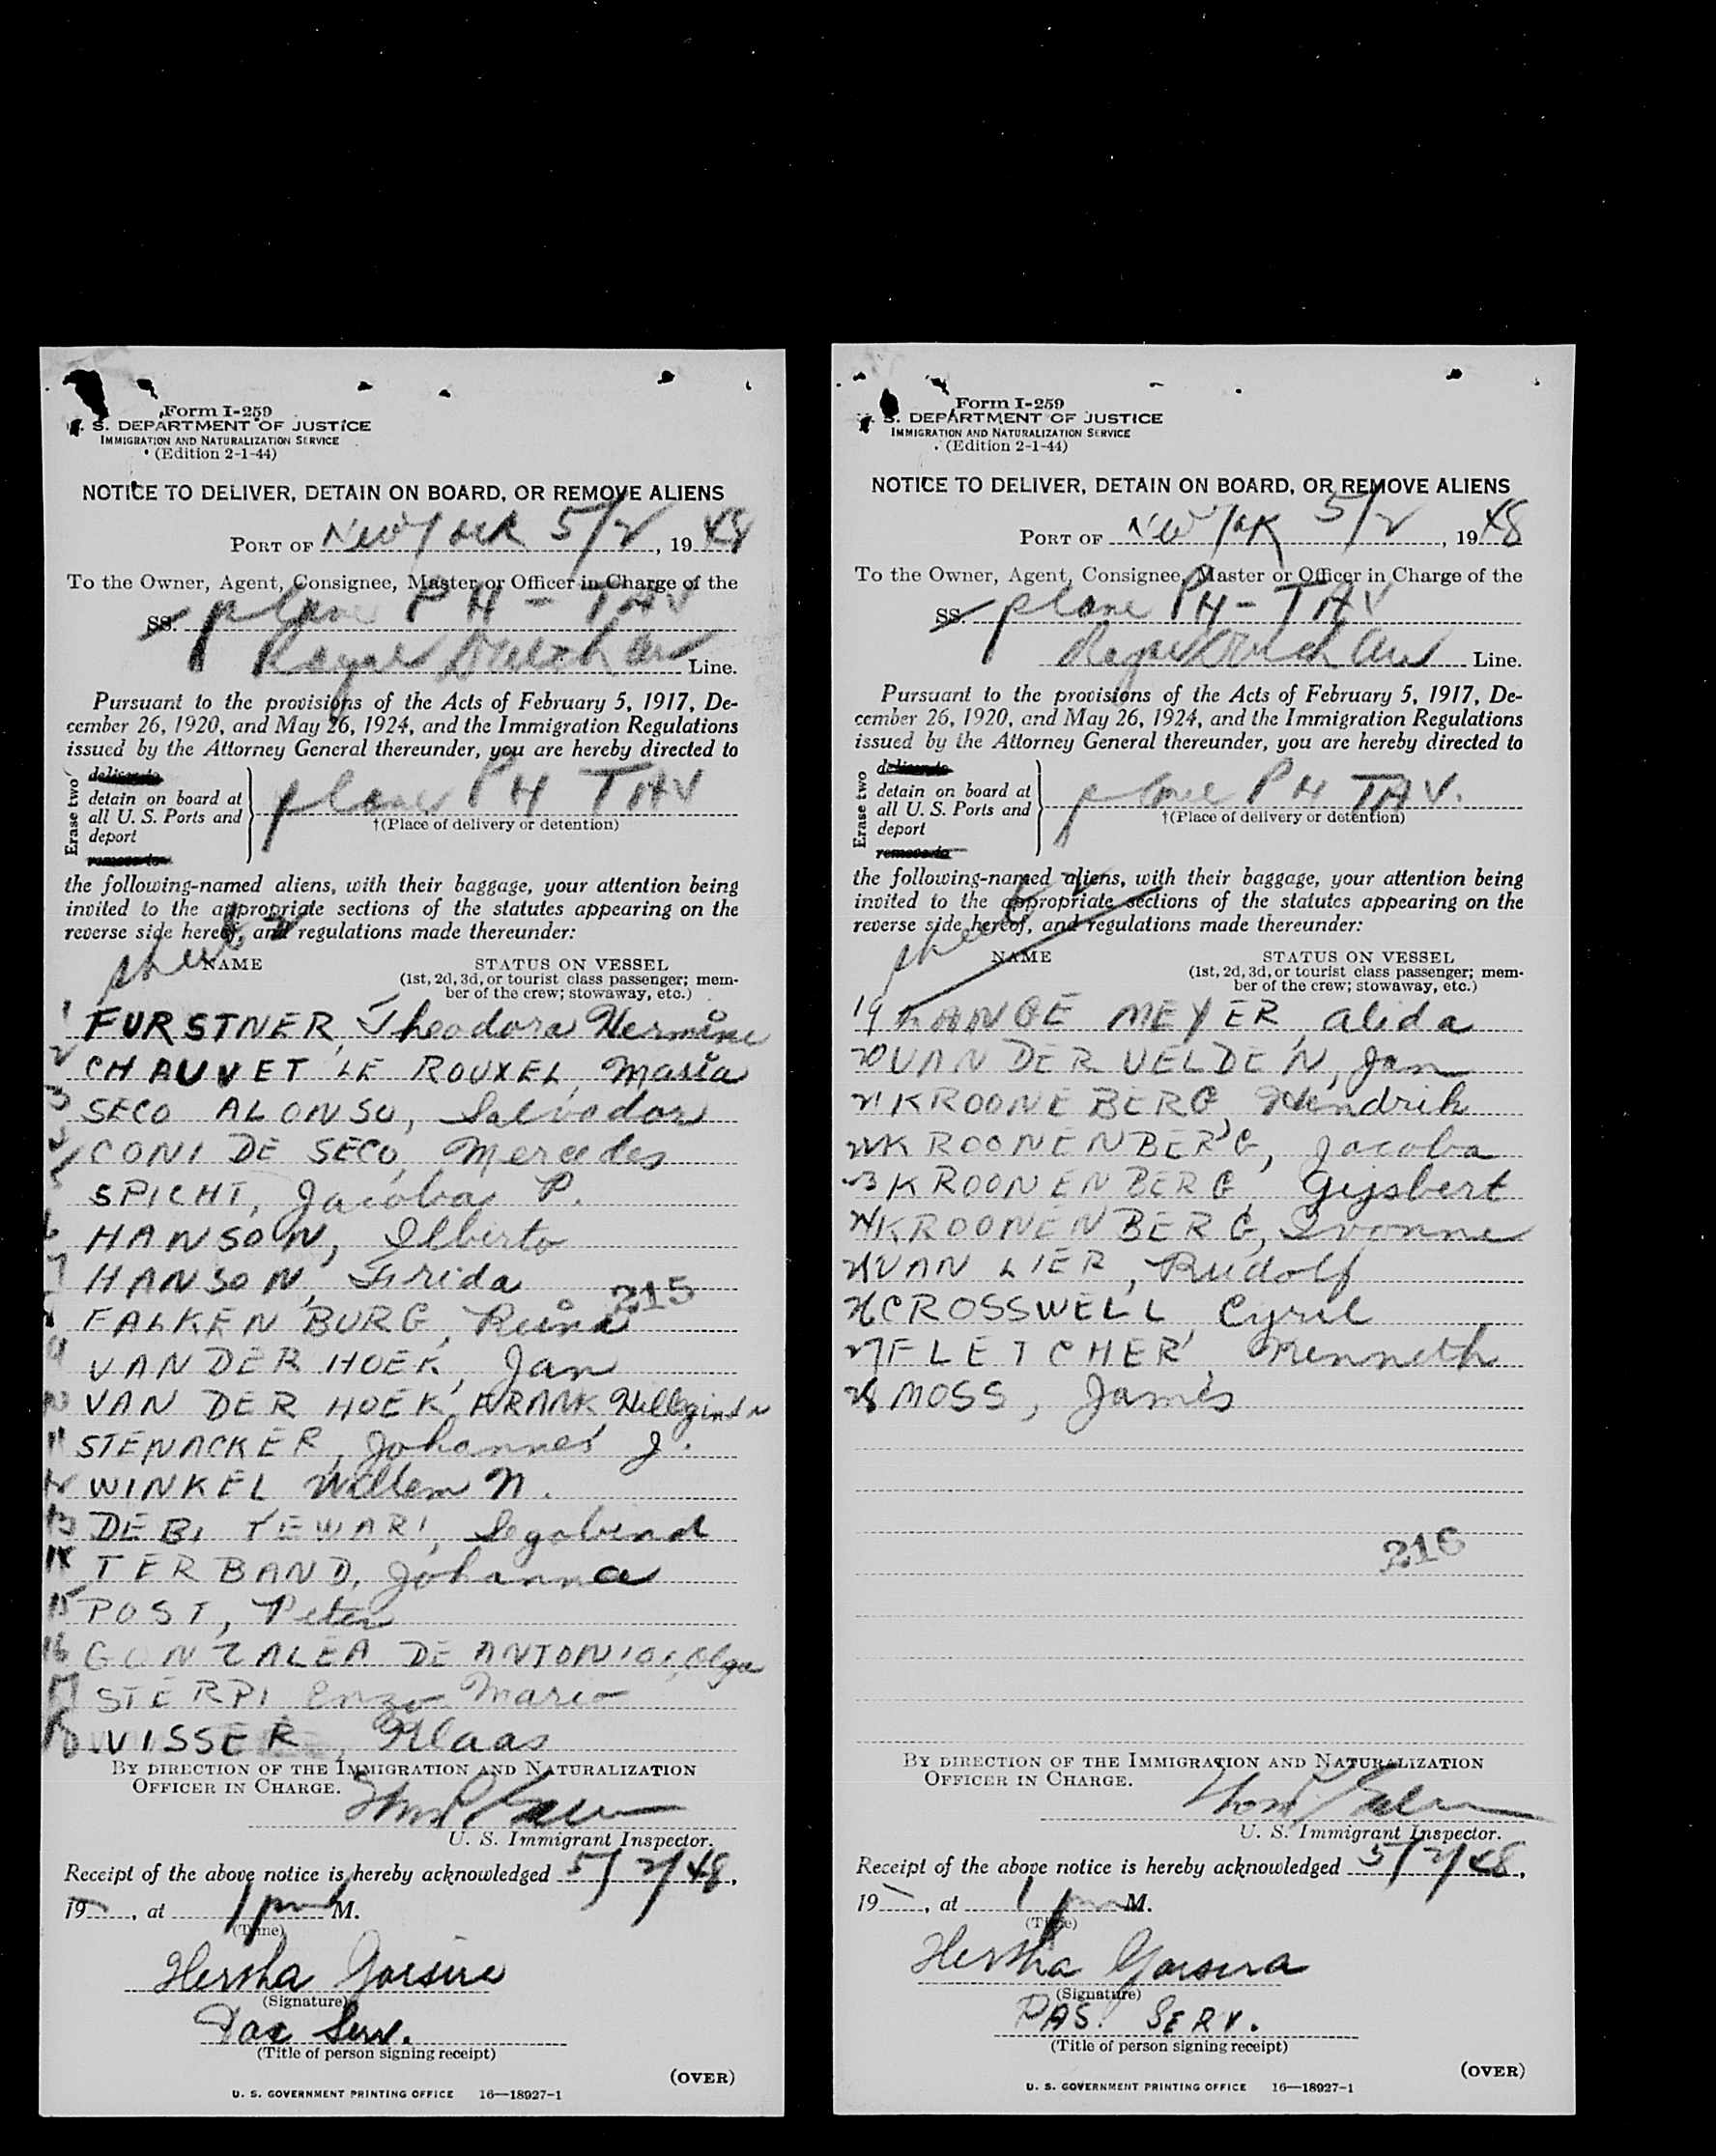 Form I-259
U. S. DEPARTMENT OF JUSTICE
IMMIGRATION AND NATURALIZATION SERVICE
(Edition 2-1-44)
NOTICE TO DELIVER, DETAIN ON BOARD, OR REMOVE ALIENS
PORT OF New York 5/2, 1948
To the Owner, Agent, Consignee, Master or Officer in Charge of the
SS. plane PH - TAV
Royal Dutch Air Line.
Pursuant to the provisions of the Acts of February 5, 1917, De-
cember 26, 1920, and May 26, 1924, and the Immigration Regulations
issued by the Attorney General thereunder, you are hereby directed to
Erase two
deliver to
detain on board at
all U. S. Ports and
deport
remove to
plane PH TAV
†(Place of delivery or detention)
the following-named aliens, with their baggage, your attention being
invited to the appropriate sections of the statutes appearing on the
reverse side hereof, and regulations made thereunder:
sheet 2
NAME
STATUS ON VESSEL
(1st, 2d, 3d, or tourist class passenger; mem-
ber of the crew; stowaway, etc.)
1 FURSTNER, Theodora Hermine
2 CHAUVET LE ROUXEL, Maria
3 SECO ALONSO, Salvador
CONI DE SECO, Mercedes
5 SPICHT, Jacoba P.
6 HANSON, Ilberto
7 HANSON, Frida
215
FALKENBURG,
9 VAN DER HOEK, Jan
10 VAN DER HOEK, FRANK
11 STENACKER, Johannes J.
12 WINKEL Willem N.
13 DEBI TEWARI,
14 TER BAND, Johanna
15 POST, Peter
16 GONZALEA DE ANTONIO, Olga
17 STERPI Enzo Mario
18 VISSER, Klaas
BY DIRECTION OF THE IMMIGRATION AND NATURALIZATION
OFFICER IN CHARGE.
U. S. Immigrant Inspector.
Receipt of the above notice is hereby acknowledged 5/2/48,
19, at 1 pm M.
(Time)
Hertha
(Signature)
Pas Serv.
(Title of person signing receipt)
(OVER)
U. S. GOVERNMENT PRINTING OFFICE 16—18927-1
Form I-259
S. DEPARTMENT OF JUSTICE
IMMIGRATION AND NATURALIZATION SERVICE
(Edition 2-1-44)
NOTICE TO DELIVER, DETAIN ON BOARD, OR REMOVE ALIENS
PORT OF New York 5/2, 1948
To the Owner, Agent, Consignee, Master or Officer in Charge of the
SS. plane PH - TAV
Royal Dutch Air Line.
Pursuant to the provisions of the Acts of February 5, 1917, De-
cember 26, 1920, and May 26, 1924, and the Immigration Regulations
issued by the Attorney General thereunder, you are hereby directed to
Erase two
deliver to
detain on board at
all U. S. Ports and
deport
remove to
plane PH TAV.
†(Place of delivery or detention)
the following-named aliens, with their baggage, your attention being
invited to the appropriate sections of the statutes appearing on the
reverse side hereof, and regulations made thereunder:
sheet
NAME
STATUS ON VESSEL
(1st, 2d, 3d, or tourist class passenger; mem-
ber of the crew; stowaway, etc.)
19 MEYER, Alida
20 VAN DER VELDEN, Jan
21 KROONEBERG, Hendrik
22 KROONENBERG, Jacoba
23 KROONENBERG, Gijsbert
24 KROONENBERG, Ivonne
25 VAN LIER, Rudolf
26 CROSSWELL, Cyril
27 FLETCHER, Kenneth
28 MOSS, James
216
BY DIRECTION OF THE IMMIGRATION AND NATURALIZATION
OFFICER IN CHARGE.
U. S. Immigrant Inspector.
Receipt of the above notice is hereby acknowledged 5/2/48,
19, at 1 pm M.
(Time)
Hertha
(Signature)
PAS. SERV.
(Title of person signing receipt)
(OVER)
U. S. GOVERNMENT PRINTING OFFICE 16—18927-1